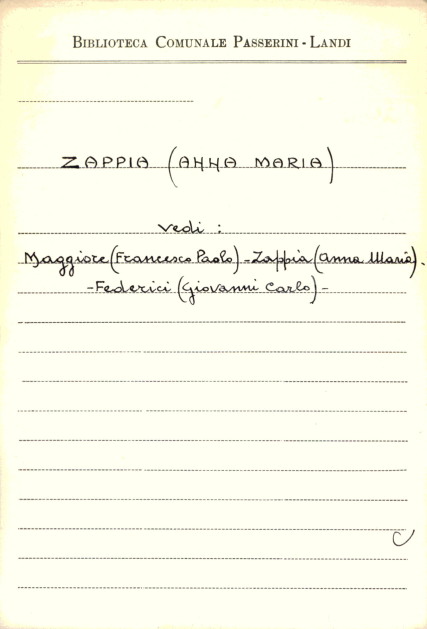 BIBLIOTECA COMUNALE PASSERINI - LANDI
ZAPPIA (ANNA MARIA)
vedi :
Maggiore (Francesco Paolo) - Zappia (Anna Maria).
- Federici (Giovanni Carlo) -